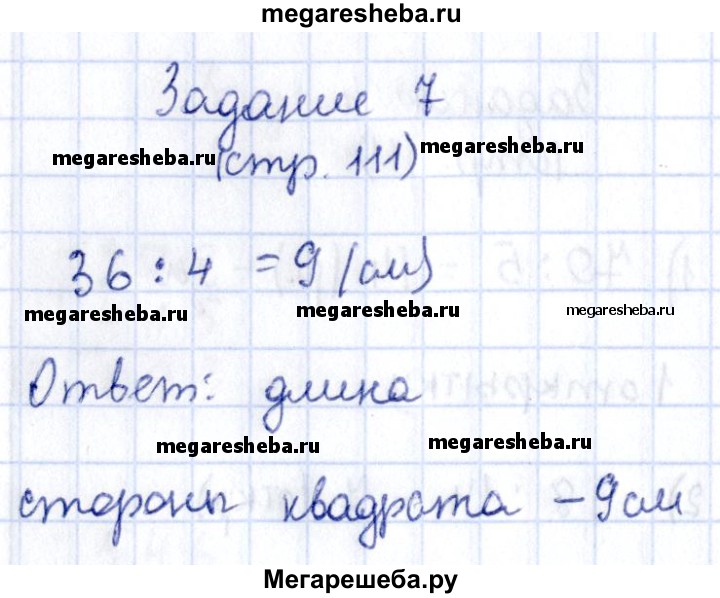 megaresheba.ru
Задание 7
megaresheba.ru (стр. 111) megaresheba.ru
36 : 4 = 9 (см)
megaresheba.ru megaresheba.ru megaresheba.ru
Ответ: длина
megaresheba.ru megaresheba.ru
стороны квадрата – 9 см
Мегарешеба.ру